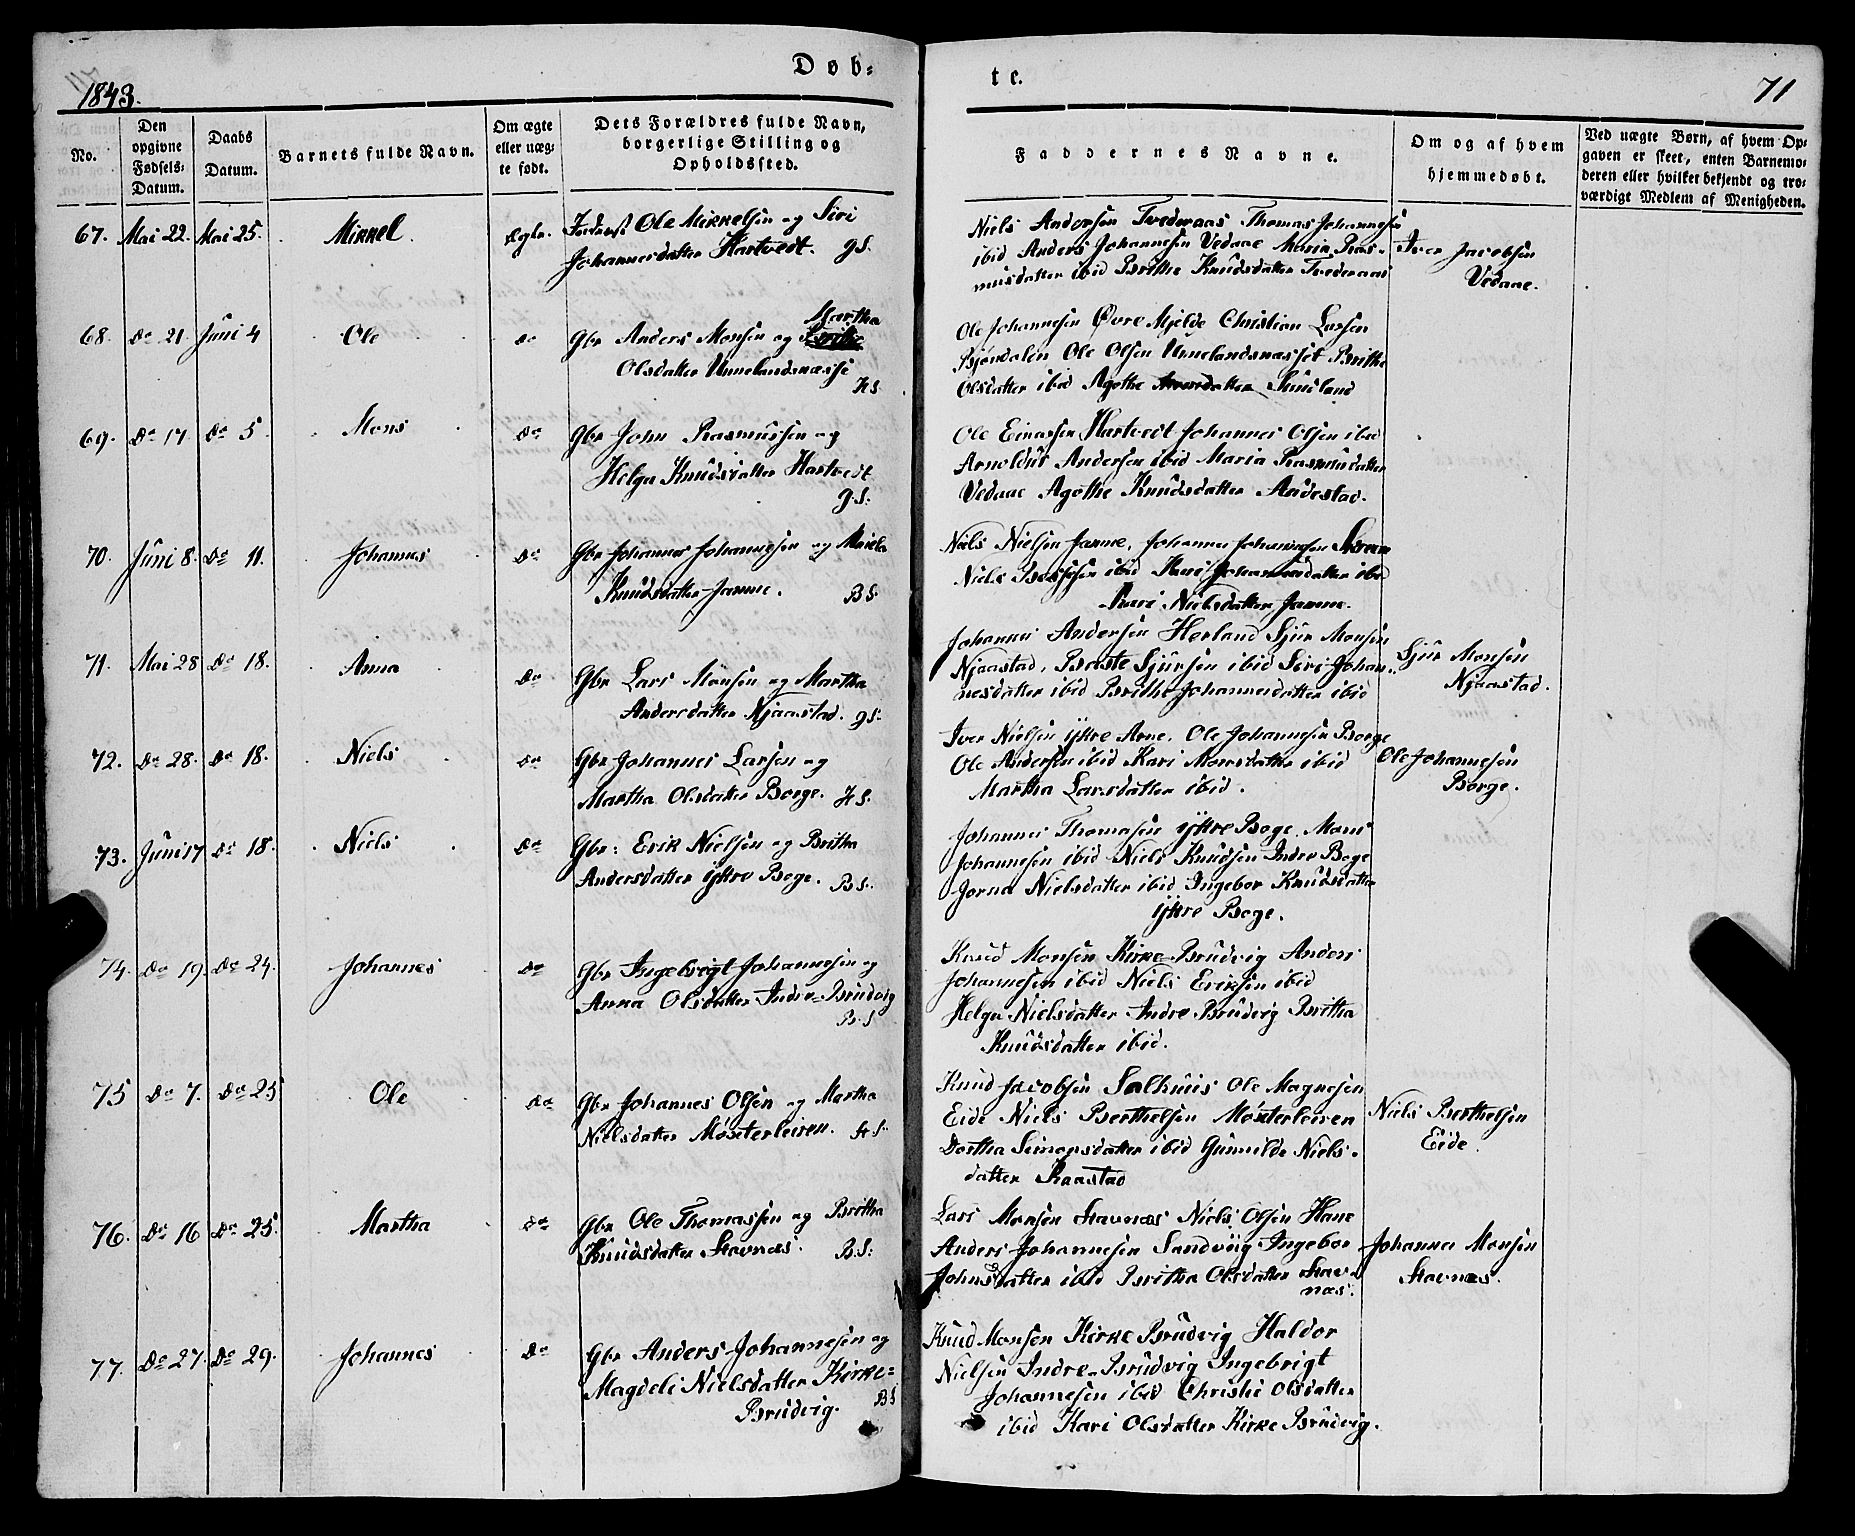 Døb=
te.
1843.
71
No.
Den opgivne Fødsels-Datum.
Daabs Datum.
Barnets fulde Navn.
Om ægte eller uæg=te født.
Dets Forældres fulde Navn, borgerlige Stilling og Opholdssted.
Faddernes Navne.
Om og af hvem hjemmedøbt.
Ved uægte Børn, af hvem Op=gaven er skeet, enten Barnemo=deren eller hvilket bekjendt og tro=værdigt Medlem af Menigheden.
67. Mai 22. Mai 25. Mikkel Ægte. Ole Mikkelsen og Siri
Johannesdatter Hartvedt. GS.
Niels Andersen Tvederaas Thomas Johannesen
ibid Anders Johannesen Vedaae Maria Ras-
musdatter ibid Brithe Knudsdatter Tvederaas
Iver Jacobsen
Vedaae.
68. do 21. Juni 4 Ole do Gbr Anders Monsen og Martha
Olsdatter Unnelandsnæsse
HS
Ole Johannesen Øvre Mjelde Christian Larsen
Bjøndalen Ole Olsen Unnelandsnæsset Brithe
Olsdatter ibid Agathe Sundland
69. do 17 do 5. Mons do Gbr John Rasmussen og
Helga Knudsdatter Hartvedt
GS.
Ole Einarsen Hartvedt Johannes Olsen ibid
Arnoldus Andersen ibid Maria Rasmusdatter
Vedaae Agathe Knudsdatter Andestad.
70. Juni 8. do 11. Johannes do Gbr Johannes Johannesen og
Knudsdatter Janne. BS.
Niels Nielsen Janne. Johannes Johannesen
Niels ibid Kari Johannesdatter ibid
Kari Nielsdatter Janne.
71. Mai 28 do 18. Anna do Gbr Lars Monsen og Martha
Andersdatter Njaastad. GS.
Johannes Andersen Herland Sjur Monsen
Njaastad. Sjursen ibid Siri Johan-
nesdatter ibid Brithe Johannesdatter ibid
Sjur Monsen
Njaastad.
72. do 28. do 18. Niels do Gbr Johannes Larsen og
Martha Olsdatter Borge. HS.
Iver Nielsen Yttre Arne. Ole Johannesen Borge
Ole Andersen ibid Kari Monsdatter ibid
Martha Larsdatter ibid.
Ole Johannesen
Borge.
73. Juni 17 do 18. Niels do Gbr: Erik Nielsen og Britha
Andersdatter Yttre Boge. BS.
Johannes Thomasen Yttre Boge. Mons
Johannesen ibid Niels Knudsen Indre Boge
Jorna Nielsdatter ibid Ingebor Knudsdatter
Yttre Boge.
74. do 19. do 24. Johannes do Gbr Ingebrigt Johannesen og
Anna Olsdatter Indre-Brudvig
BS
Knud Monsen Kirke-Brudvig Anders
Johannesen ibid Niels Eriksen ibid
Helga Nielsdatter Indre Brudvig Britha
Knudsdatter ibid.
75 do 7. do 25 Ole do Gbr Johannes Olsen og Martha
Nielsdatter Møsterleiren. HS.
Knud Jacobsen Salhuus Ole Magnesen
Eide Niels Berthelsen Møsterleiren
Dorthea Simonsdatter ibid Gunnilde Niels-
datter Raastad
Niels Berthelsen
Eide.
76. do 16 do 25. Martha do Gbr Ole Thomassen og Britha
Knudsdatter Stavnæs. BS.
Lars Monsen Stavnæs Niels Olsen Hane
Anders Johannesen Sandviig Ingebor
Johnsdatter ibid Britha Olsdatter Stav-
næs.
Johannes Monsen
Stavnæs.
77. do 27. do 29. Johannes do Gbr Anders Johannesen og
Magdeli Nielsdatter Kirke=
Brudvig. BS
Knud Monsen Kirke Brudvig Haldor
Nielsen Indre-Brudvig Ingebrigt
Johannesen ibid Christie Olsdatter
ibid Kari Olsdatter Kirke Brudvig.